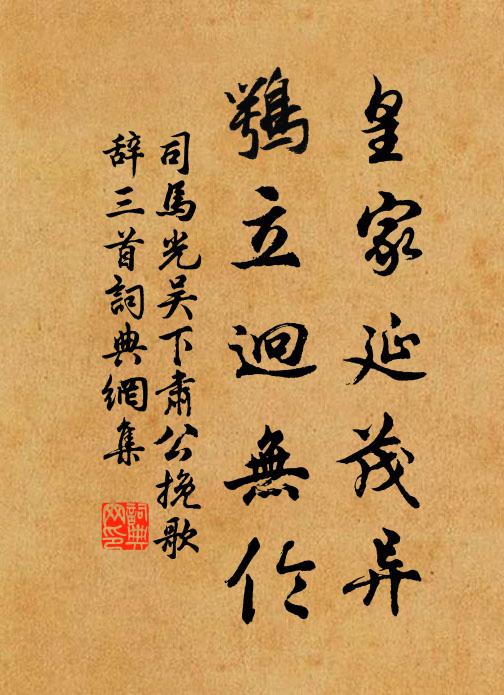 皇家延茂异
鶚立迥無伦
司馬光吴下肅公挽歌
辞三首詞典網集
詞典网印